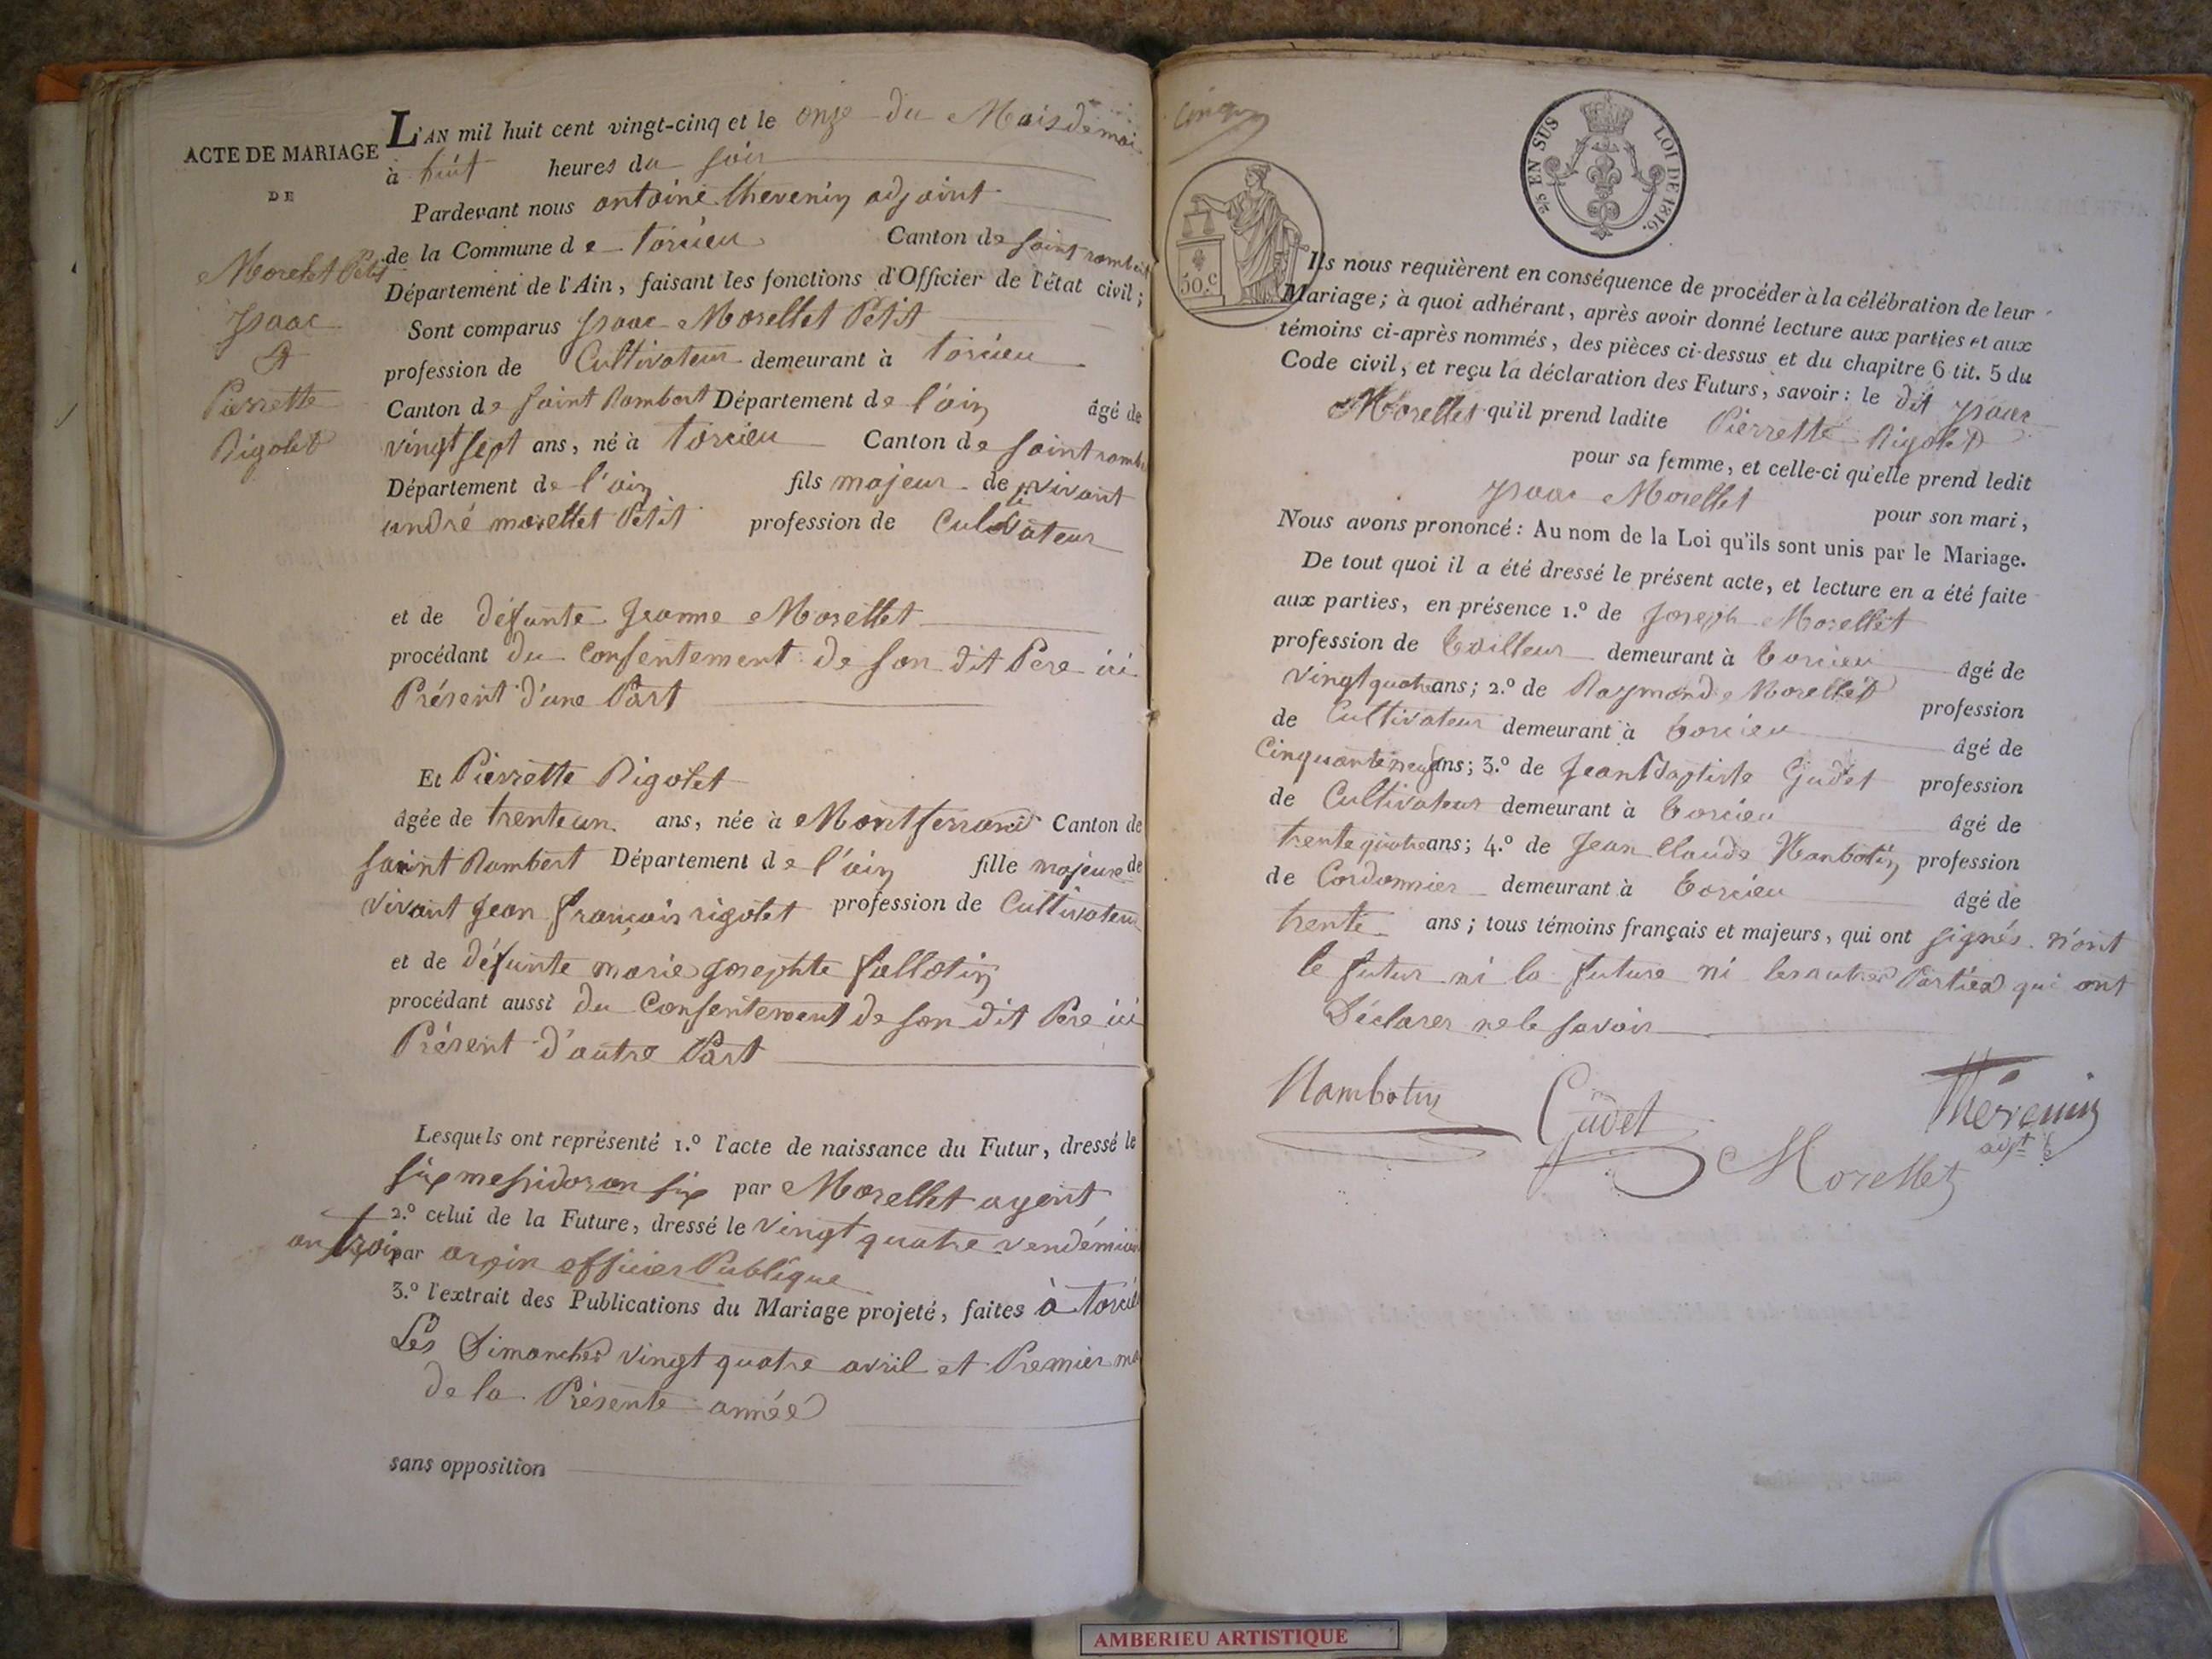 ACTE DE MARIAGE
DE
Morellet Petit
Isaac
et
Pierrette
Rigolet
L'AN mil huit cent vingt-cinq et le onze du Mois de mai
à huit heures du soir
Pardevant nous antoine thevenin adjoint
de la Commune de torcieu Canton de saint rambert
Département de l'Ain, faisant les fonctions d'Officier de l'état civil;
Sont comparus Isaac Morellet Petit
profession de Cultivateur demeurant à torcieu
Canton de saint Rambert Département de l'ain âgé de
vingt sept ans, né à torcieu Canton de saint ramb
Département de l'ain fils majeur de vivant
andré morellet Petit profession de Cultivateur
et de défunte Jeanne Morellet
procédant du Consentement de son dit Pere ici
Présent d'une Part
Et Pierrette Rigolet
âgée de trente un ans, née à Montferrand Canton de
saint Rambert Département de l'ain fille majeure de
vivant Jean françois rigolet profession de Cultivateur
et de défunte marie Josephte fallotin
procédant aussi du Consentement de son dit Pere ici
Présent d'autre Part
Lesquels ont représenté 1.º l'acte de naissance du Futur, dressé le
six messidor an six par Morellet agent
2.º celui de la Future, dressé le vingt quatre vendémiair
an trois par officier Publique
3.º l'extrait des Publications du Mariage projeté, faites à torcieu
Les Dimanches vingt quatre avril et Premier ma
de la Présente année
sans opposition
2/5 EN SUS LOI DE 1816.
50.c
Ils nous requièrent en conséquence de procéder à la célébration de leur
Mariage; à quoi adhérant, après avoir donné lecture aux parties et aux
témoins ci-après nommés, des pièces ci-dessus et du chapitre 6 tit. 5 du
Code civil, et reçu la déclaration des Futurs, savoir: le dit Isaac
Morellet qu'il prend ladite Pierrette Rigolet
pour sa femme, et celle-ci qu'elle prend ledit
Isaac Morellet pour son mari,
Nous avons prononcé: Au nom de la Loi qu'ils sont unis par le Mariage.
De tout quoi il a été dressé le présent acte, et lecture en a été faite
aux parties, en présence 1.º de Joseph Morellet
profession de tailleur demeurant à torcieu âgé de
vingt quatre ans; 2.º de Raymond Morellet profession
de Cultivateur demeurant à torcieu âgé de
Cinquante neuf ans; 3.º de Jean Baptiste Gudet profession
de Cultivateur demeurant à torcieu âgé de
trente quatre ans; 4.º de Jean Claude Nambotin profession
de Cordonnier demeurant à torcieu âgé de
trente ans; tous témoins français et majeurs, qui ont signés n'ont
le futur ni la future ni les autres Parties qui ont
Déclarer ne le savoir
Nambotin Gudet Thévenin
adjt
Morellet
AMBERIEU ARTISTIQUE